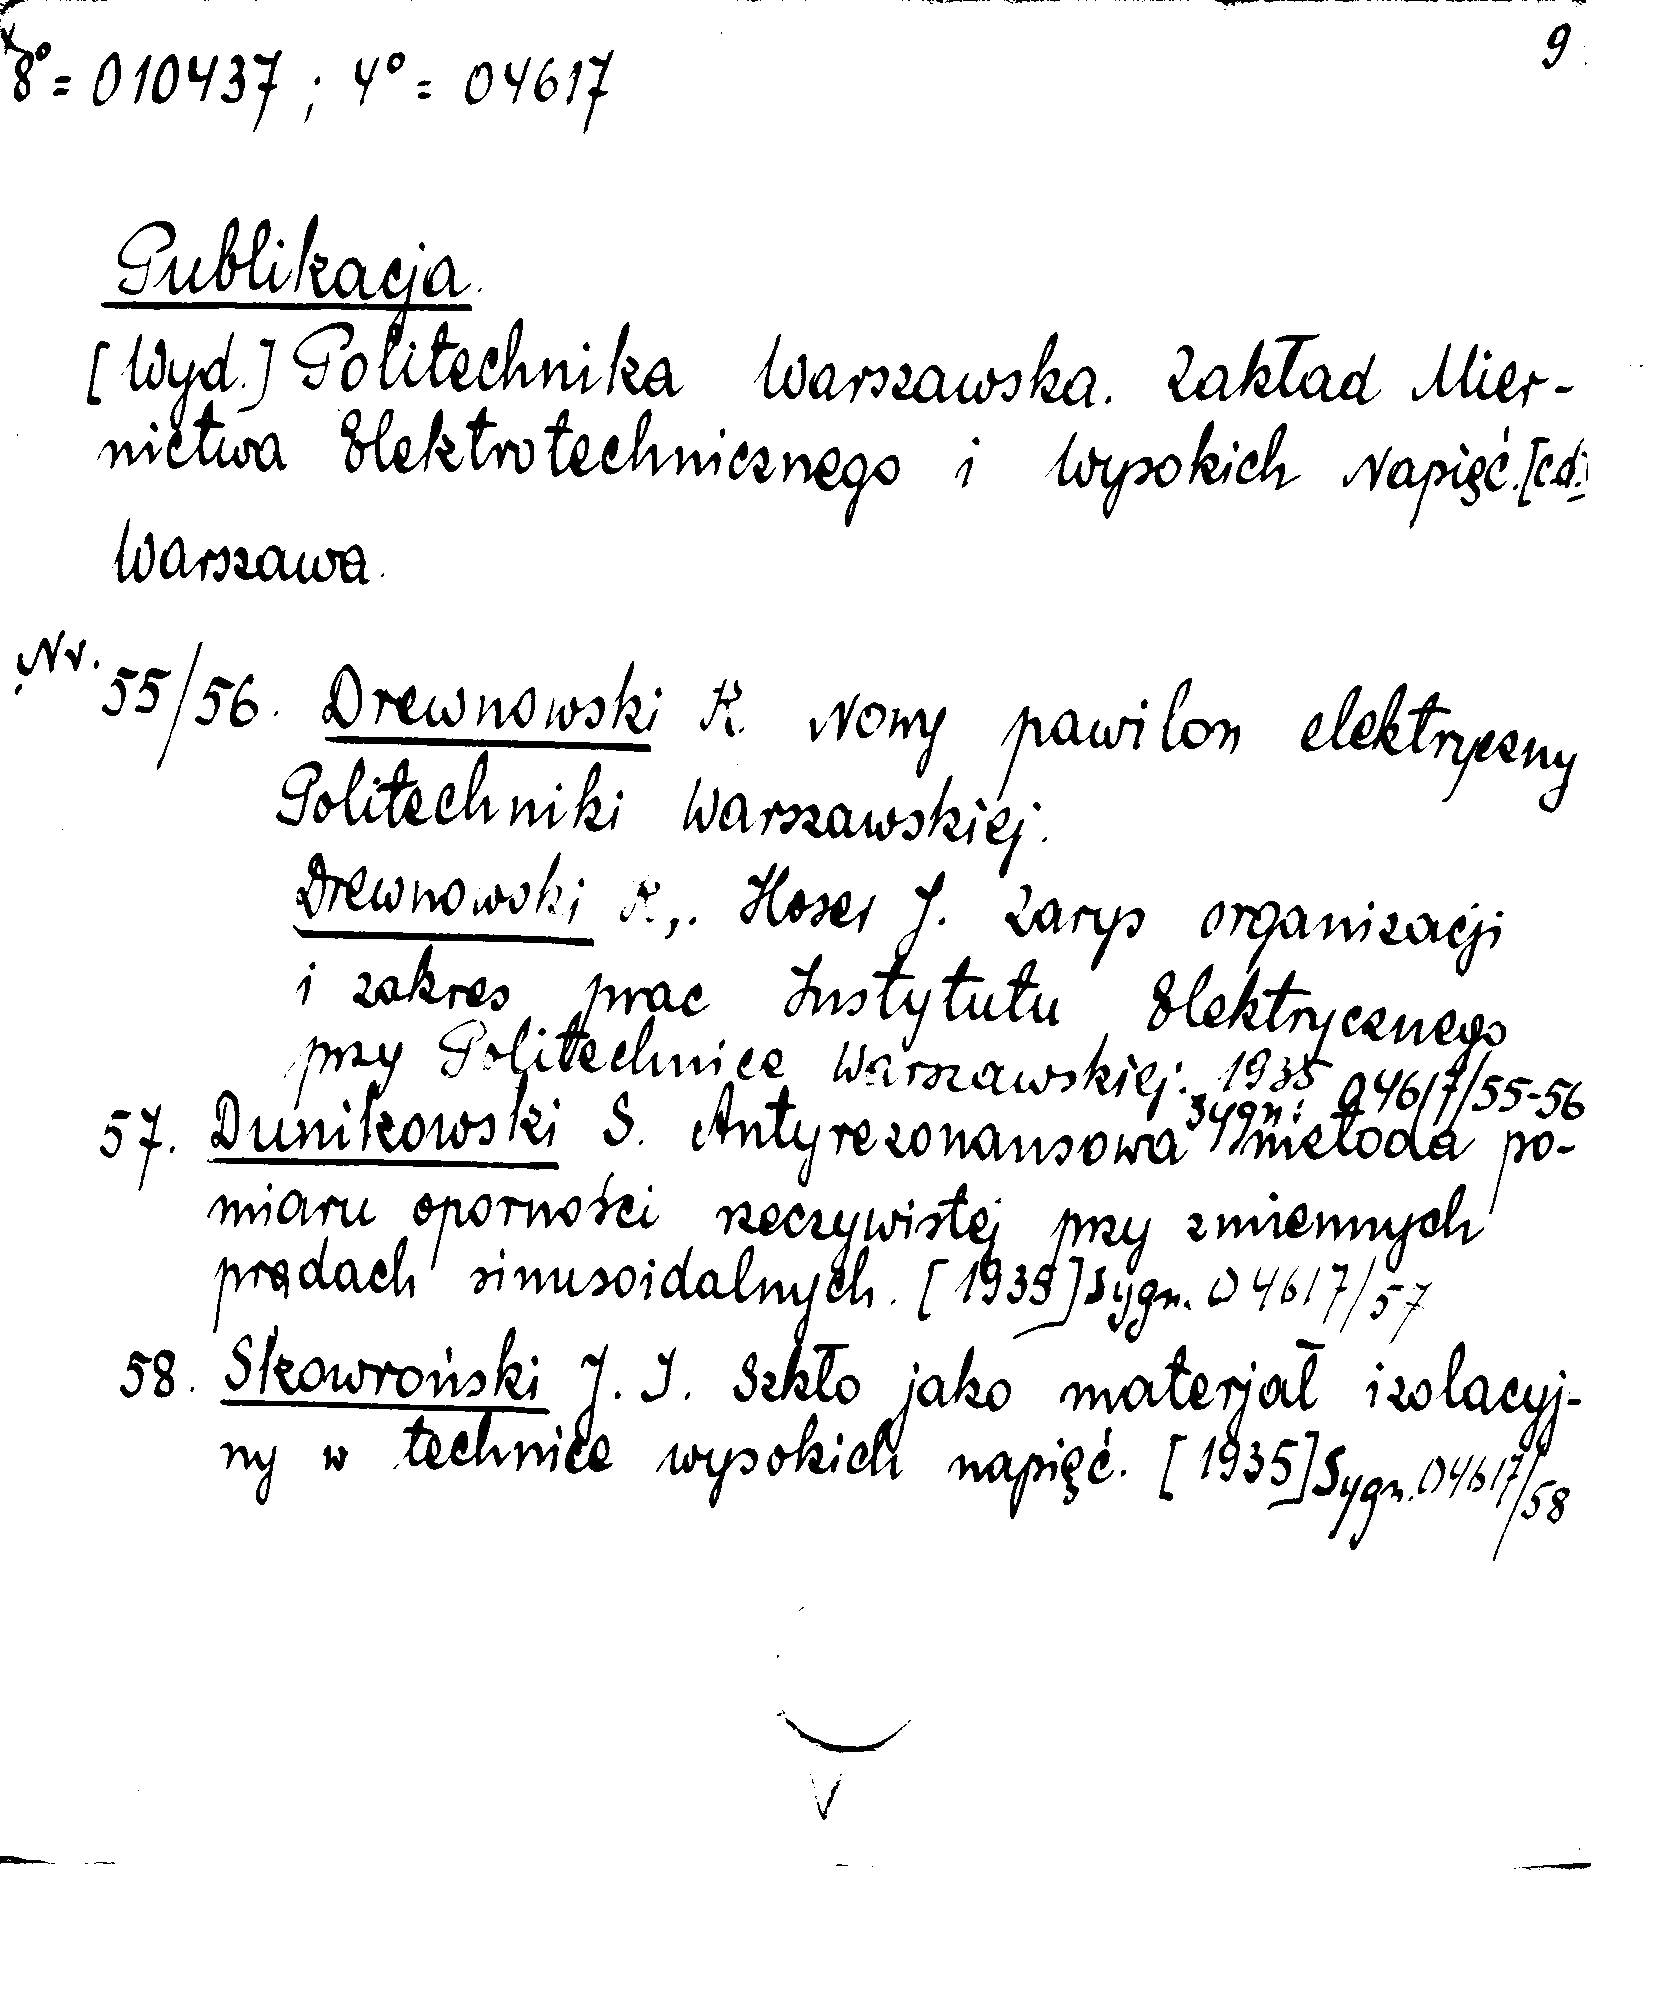 9
8° = 010437 ; 4° = 04617
Publikacja.
[Wyd.] Politechnika Warszawska. Zakład Mier-
nictwa Elektrotechnicznego i Wysokich Napięć. [cd.]
Warszawa.
Nr. 55/56. Drewnowski K. Nowy pawilon elektryczny
Politechniki Warszawskiej.
Drewnowski K., Hoser J. Zarys organizacji
i zakres prac Instytutu Elektrycznego
przy Politechnice Warszawskiej. 1935
Sygn: 04617/55-56
57. Dunikowski S. Antyrezonansowa metoda po-
miaru oporności rzeczywistej przy zmiennych
prądach sinusoidalnych. [1935] Sygn. 04617/57
58. Skowroński J. I. Szkło jako materjał izolacyj-
ny w technice wysokich napięć. [1935] Sygn. 04617/58
V